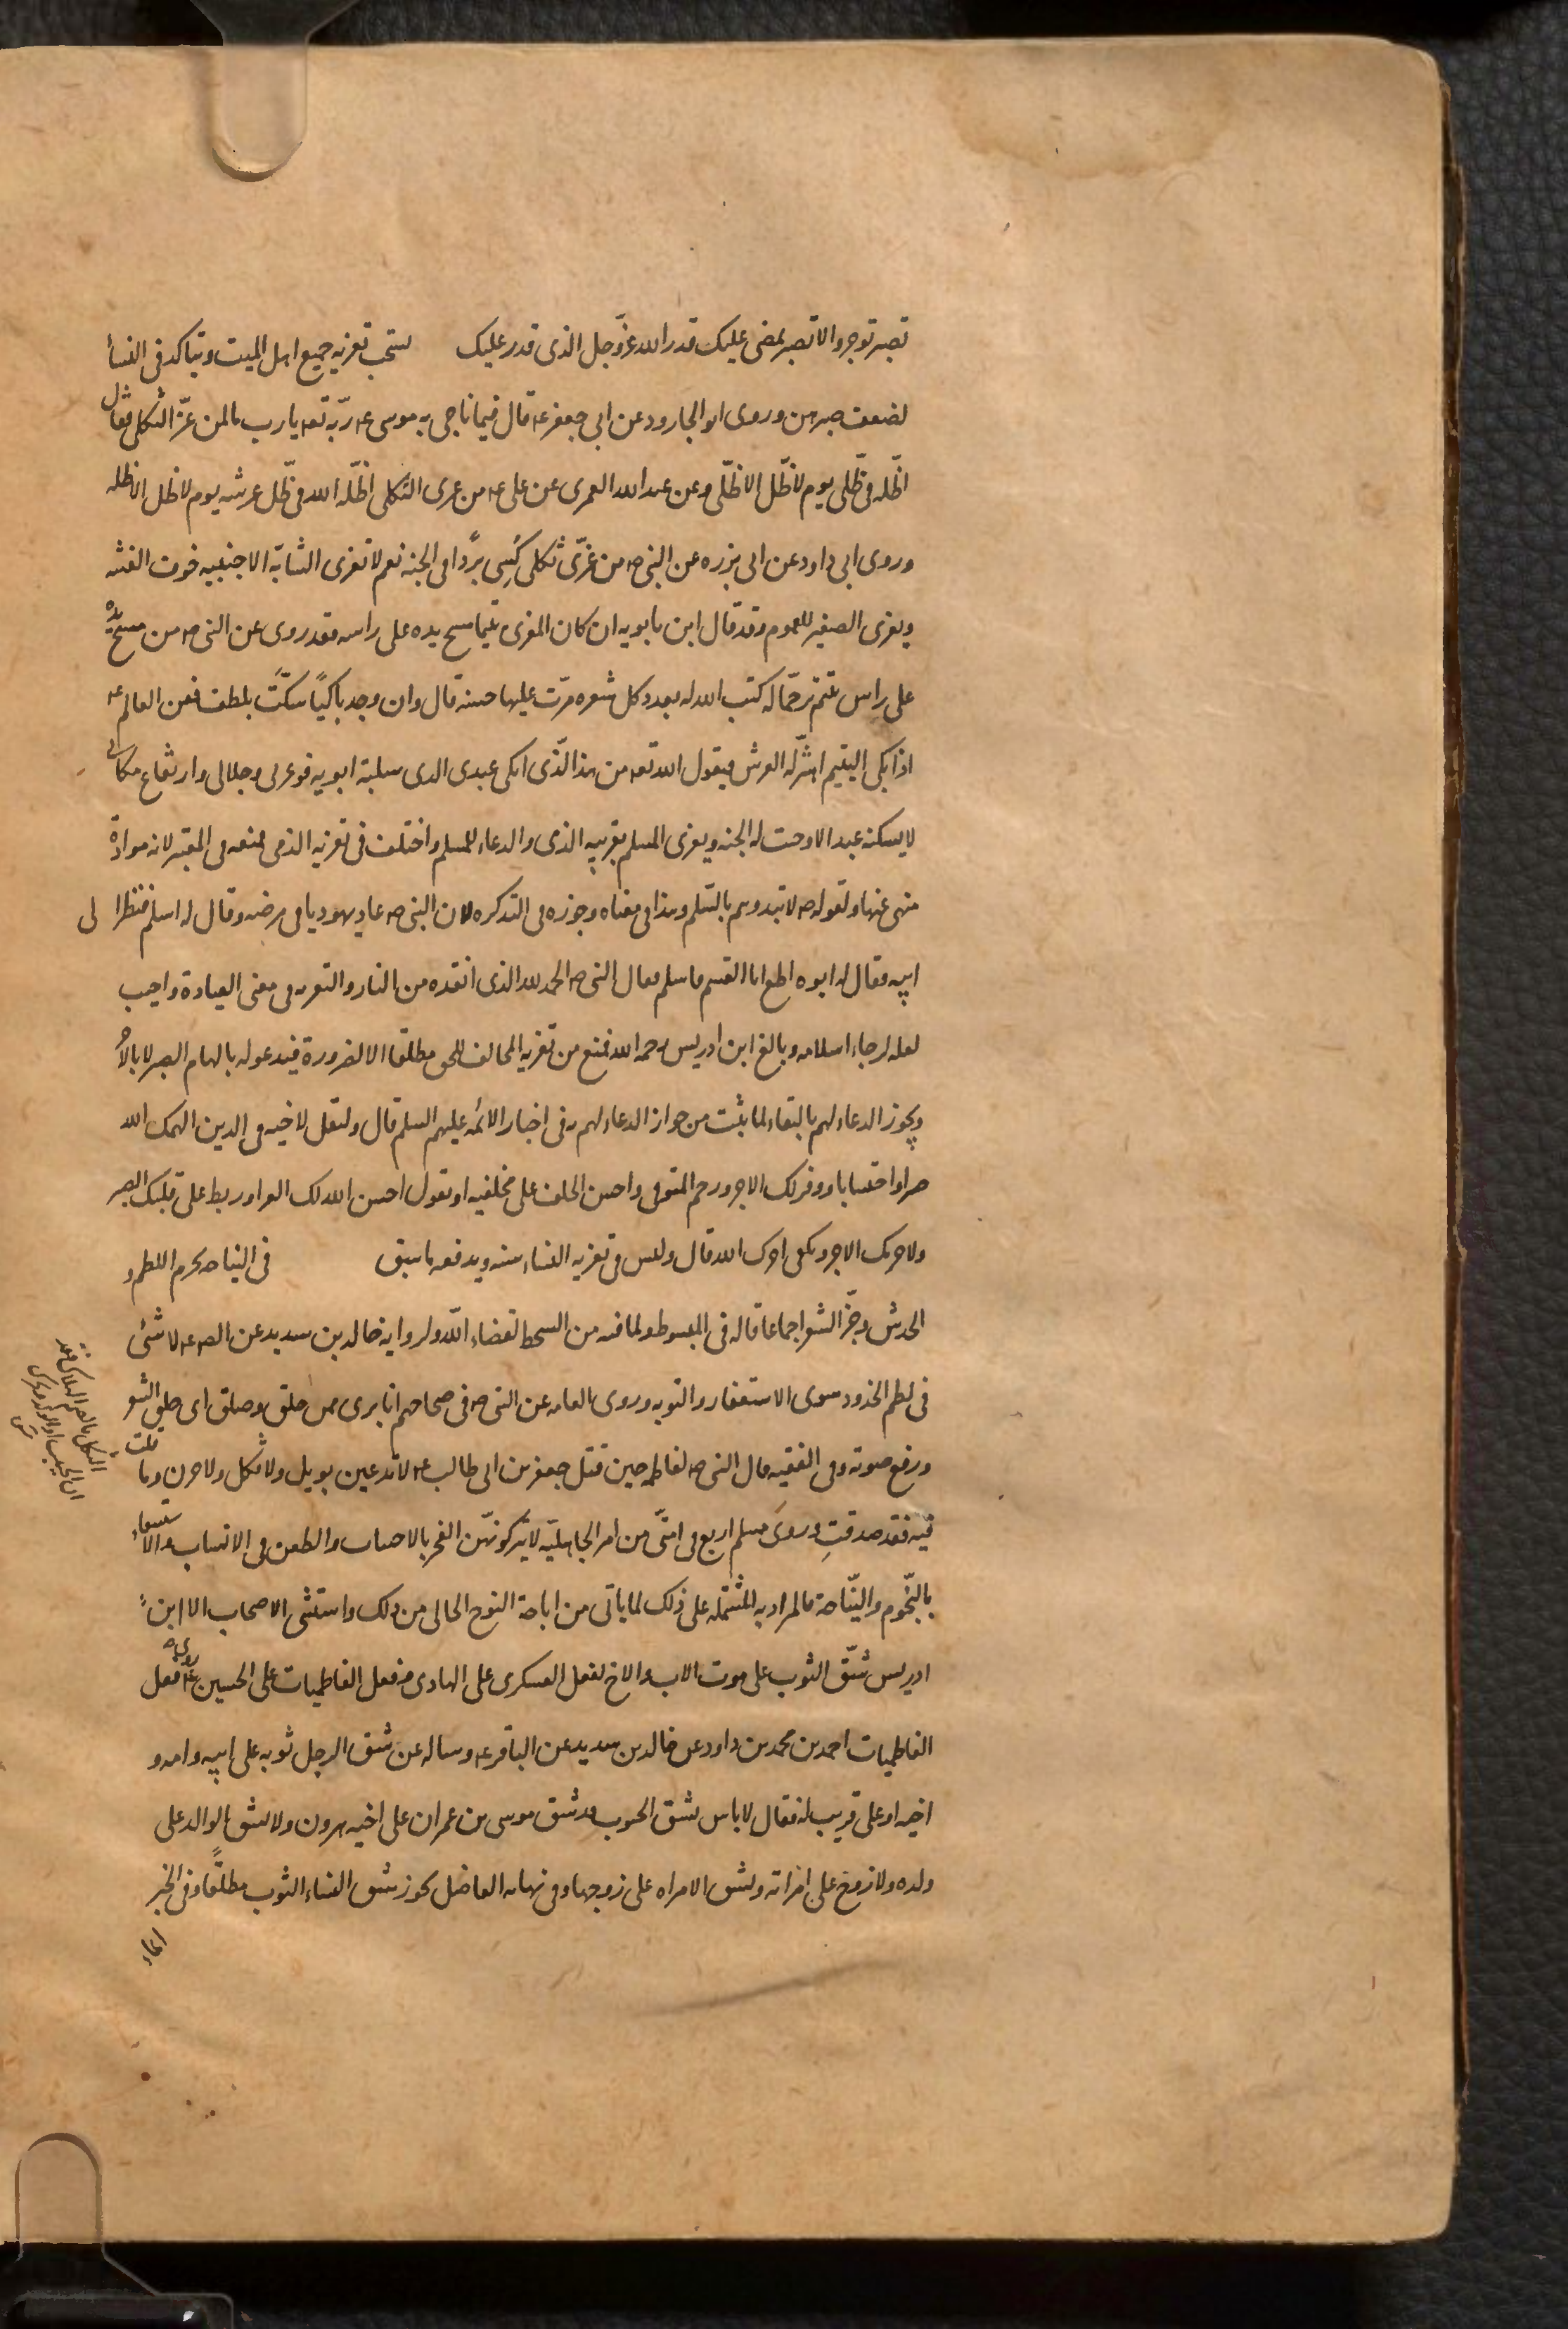 تصبر توجر والا تصبر يمضى عليك قدر الله عزّوجل الذى قدر عليك يستحب تعزيه جميع اهل الميت ويتاكد فى النساء
لضعف صبرهن وروى ابو الجارود عن ابى جعفر عه قال فيما ناجى به موسى عه ربّه تعه يارب ما لمن عزّ الثكلى فقال
اظّله فى ظّلى يوم لا ظّل الا ظّلى وعن عبد الله العمرى عن على عه من عزى الثكلى اظّله الله فى ظّل عرشه يوم لا ظل الا ظله
وروى ابى داود عن ابى بزره عن النبى صه من عزّى ثكلى كُسِى بردًا فى الجنه نعم لا تعزى الشابّه الاجنبيه خوف الفتنه
ويعزى الصغير للعموم وقد قال ابن بابويه ان كان المعزى يتيما مسح يده على راسه فقد روى عن النبى صه من مسح يده
على راس يتيم ترحّما له كتب الله له بعدد كل شعره مرّت عليها حسنه قال وان وجد باكيًا سكّتَ بلطف فعن العالم عه
اذا بكى اليتيم اهتزّ له العرش فيقول الله تعه من هذا الّذى ابكى عبدى الذى سلبته ابويه فوعزتى وجلالى وارتفاع مكانى
لا يسكته عبد الا وجبت له الجنه ويعزى المسلم بقريبه الذى والدعاء للمسلم واختلف فى تعزيه الذمى فمنعه فى المعتبر لانه موادّة
منهى عنها ولقوله صه لا تبدوهم بالسّلم وهذا فى معناه وجوزه فى التذكره لان النبى صه عاد يهوديا فى مرضه وقال له اسلم فنظر الى
ابيه فقال له ابوه اطع ابا القسم فاسلم فقال النبى صه الحمد لله الذى انقذه من النار والتعزيه فى معنى العيادة واجيب
لعله لرجاء اسلامه وبالغ ابن ادريس رحمه الله فمنع من تعزيه المخالف للحق مطلقا الا لضرورة فيدعو له بالهام الصبر لا بالاجر
ويجوز الدعاء لهم بالبقاء لما ثبت من جواز الدعاء لهم به فى اخبار الائمه عليهم السلم قال وليقل لاخيه فى الدين الهمك الله
صبرا واحتسابا ووفر لك الاجر ورحم المتوفى واحسن الخلف على مخلفيه او تقول احسن الله لك العزا وربط على قلبك الصبر
ولا حرمك الاجر ويكفى اجرك الله قال وليس فى تعزيه النساء سنه ويدفعه ما سبق فى النياحه يحرم اللطم و
الخدش وجزّ الشعر اجماعا قاله فى المبسوط ولما فيه من السخط لقضاء الله ولروايه خالد بن سدير عن الصه عه لا شئ
فى لطم الخدود سوى الاستغفار والتوبه وروى العامه عن النبى صه فى صحاحهم انا برى ممن حلق وصلق اى حلق الشعر
ورفع صوته وفى الفقيه قال النبى صه لفاطمه حين قتل جعفر بن ابى طالب عه لا تدعين بويل ولا ثكل ولا حرب وما قلت
فيه فقد صدقتِ وروىَ مسلم اربع فى امتّى من امر الجاهليّه لا يتركونهّن الفخر بالاحساب والطعن فى الانساب والاستسقاء
بالنّجوم والنّياحة فالمراد به المشتمله على ذلك لما ياتى من اباحة النوح الخالى من ذلك واستثنى الاصحاب الا ابن
ادريس شقّ الثوب على موت الاب والاخ لفعل العسكرى على الهادى وفعل الفاطميات على الحسين عه روى فعل
الفاطميات احمد بن محمد بن داود عن خالد بن سدير عن الباقر عه وساله عن شق الرجل ثوبه على ابيه وامه و
اخيه او على قريب له فقال لا باس بشق الجيوب قد شق موسى بن عمران على اخيه هرون ولا يشق الوالد على
ولده ولا زوج على امراته وتشق الامراه على زوجها وفى نهايه الفاضل يجوز شق النساء الثوب مطلقًا وفى الخبر
ايماء
الثكل بالضم الهلاك وفقد
الحبيب او الولد ويحرك